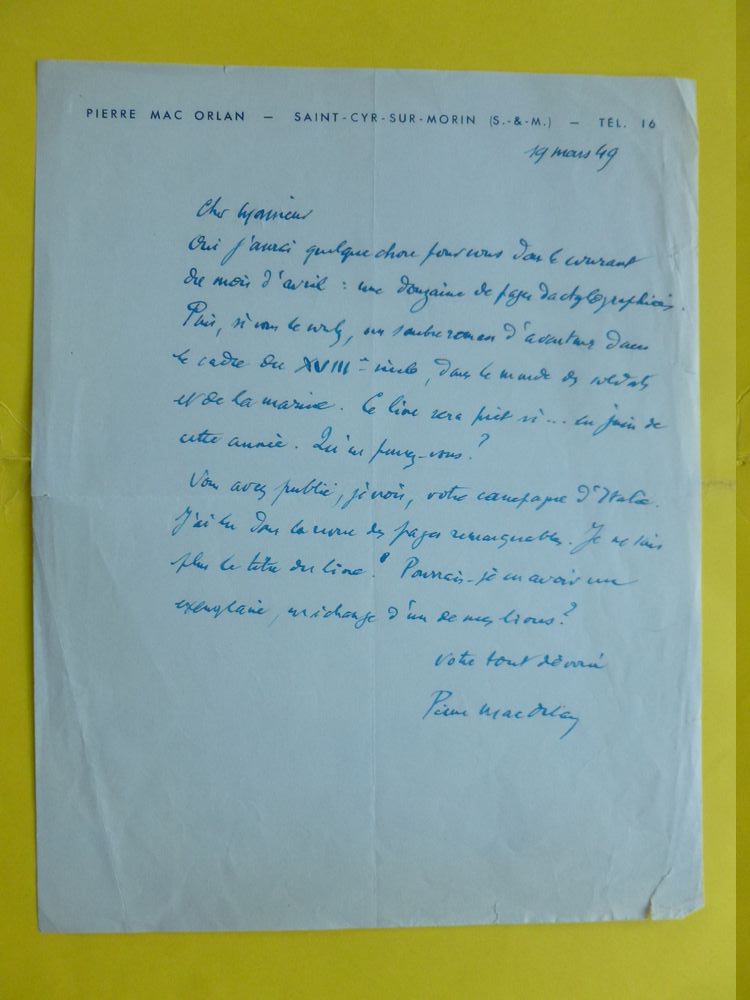 PIERRE MAC ORLAN — SAINT-CYR-SUR-MORIN (S.-&-M.) — TÉL. 16
19 mars 49
Cher Monsieur
Oui j'aurai quelque chose pour vous dans le courant
du mois d'avril : une douzaine de pages dactylographiées.
Puis, si vous le voulez, un roman d'aventures dans
le cadre du XVIIIe siècle, dans le monde des soldats
et de la marine. Ce livre sera prêt si... en juin de
cette année. Qu'en pensez-vous ?
Vous avez publié, je crois, votre campagne d'Italie.
J'ai lu dans la revue des pages remarquables. Je ne sais
plus le titre du livre ? Pourrais-je en avoir un
exemplaire, en échange d'un de mes livres ?
Votre tout dévoué
Pierre Mac Orlan